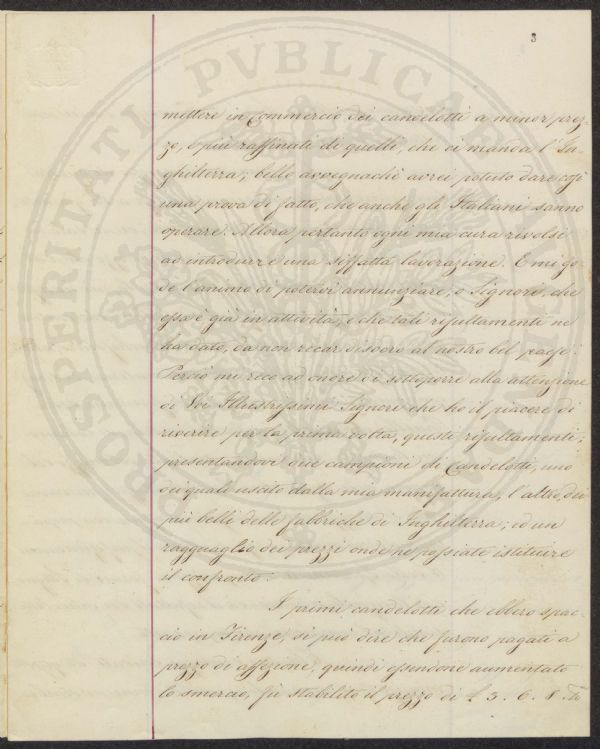 3
mettere in commercio dei candelotti a minor prez-
zo, e più raffinati di quelli, che ci manda l'In-
ghilterra; bello avvegnachè avrei potuto dare così
una prova di fatto, che anche gli Italiani sanno
operare. Allora pertanto ogni mia cura rivolsi
ad introdurre una siffatta lavorazione. E mi go-
de l'animo di potervi annunziare, o Signori, che
essa è già in attività, e che tali resultamenti ne
ha dato, da non recar disdoro al nostro bel paese.
Perciò mi reco ad onore di sottoporre alla attenzione
di Voi Illustrissimi Signori che ho il piacere di
riverire per la prima volta, questi resultamenti;
presentandovi due campioni di Candelotti, uno
dei quali uscito dalla mia manifattura, l'altro, dei
più belli delle fabbriche di Inghilterra; ed un
ragguaglio dei prezzi onde ne possiate istituire
il confronto.
I primi candelotti che ebbero spac-
cio in Firenze, si può dire che furono pagati a
prezzo di affezione, quindi essendone aumentato
lo smercio, fù stabilito il prezzo di £ 3. 6. 8.
PROSPERITATI PVBLICAE